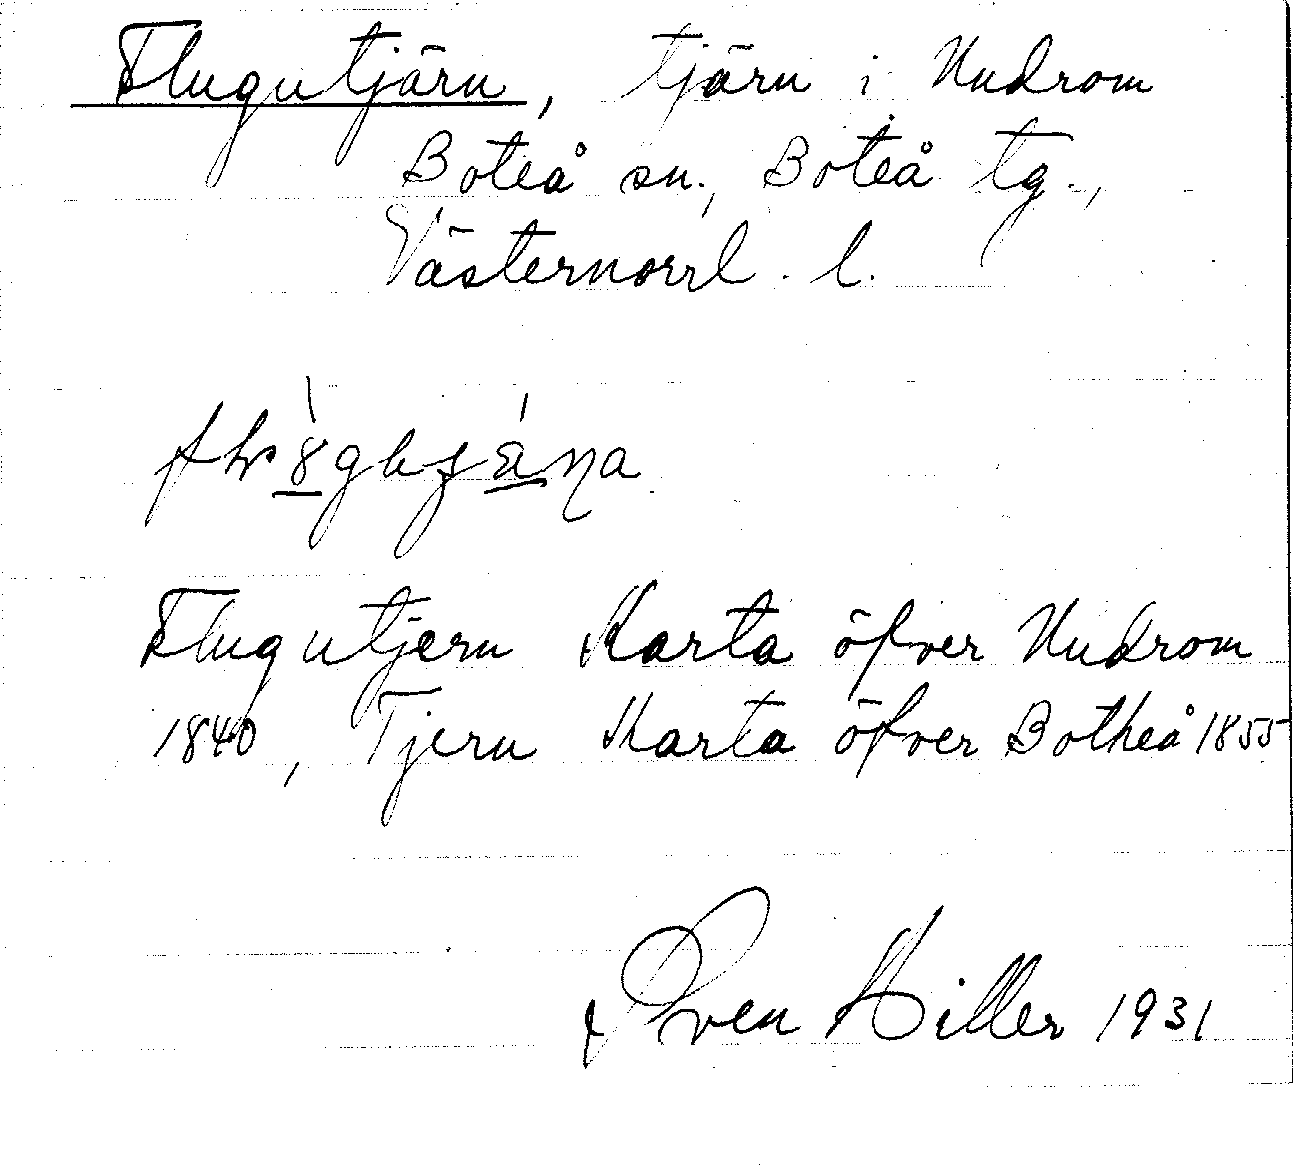 Flugutjärn, tjärn i Undrom
Boteå sn., Boteå tg.,
Västernorrl. l.
Flugutjern Karta öfver Undrom
1840, Tjern Karta öfver Botheå 1855
Sven Hiller 1931